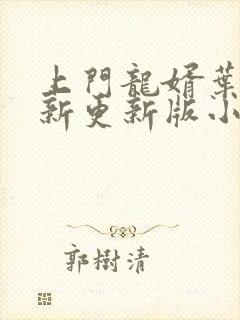 上門龍婿葉
新更新版小
郭樹清